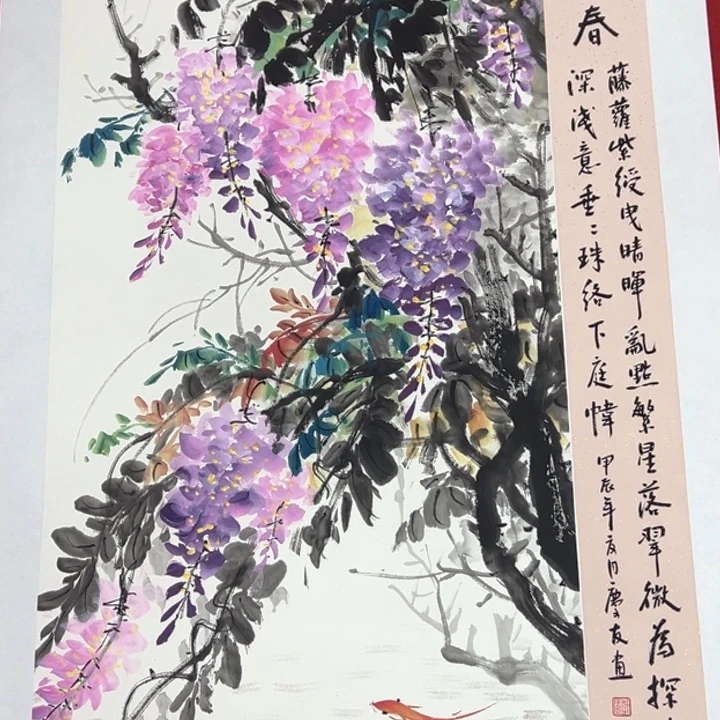 藤蘿紫綬曳晴暉亂點繁星落翠微為探
春深淺意垂〻珠絡下庭幃 甲辰年夏月慶友畫